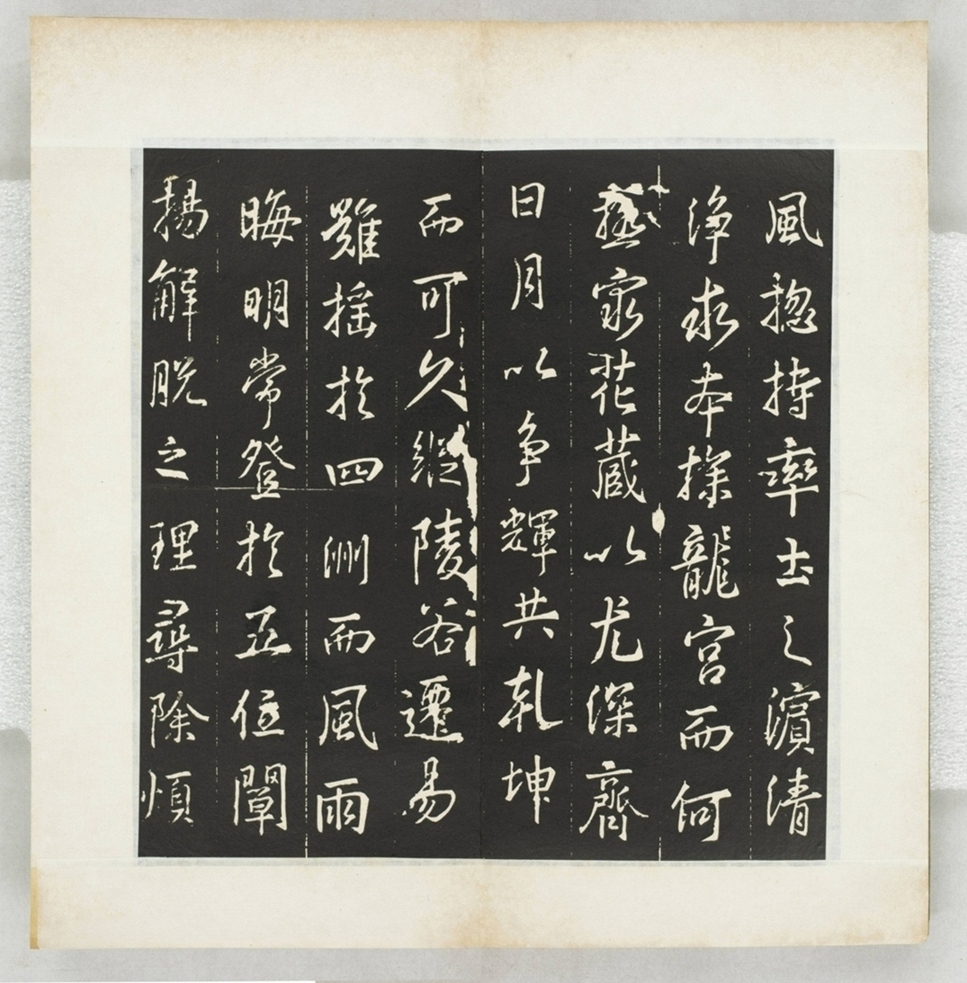 風揔持率土之濱清
淨求本探龍宮而何
極花藏以尤深齊
日月以爭輝共乹坤
而可久縱陵谷遷易
難搖於四洲而風雨
晦明常登於五位闡
揚解脫之理尋除煩